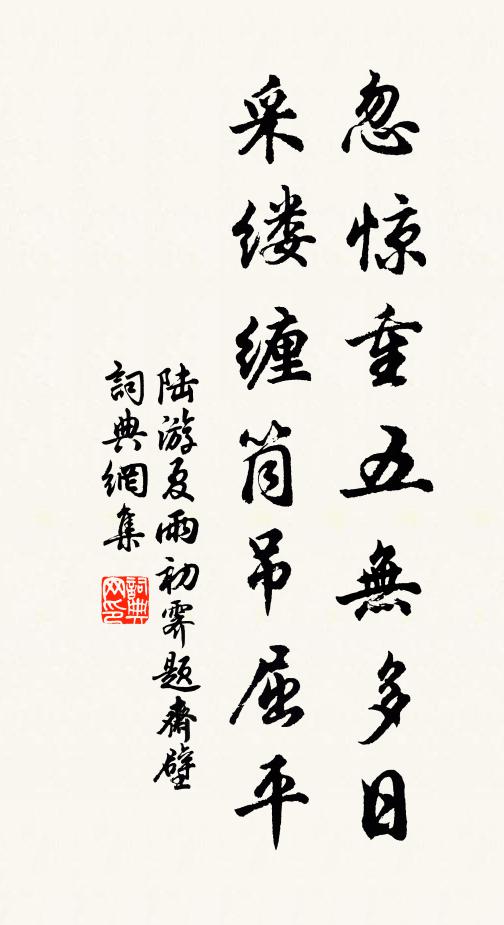 忽惊重五無多日
采缕纏筒吊屈平
陆游夏雨初霁題齋壁
詞典網集
詞典
网印